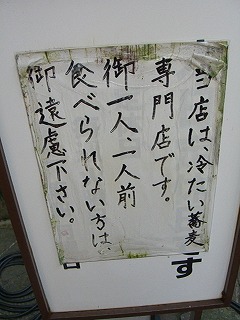 当店は、冷たい蕎麦
専門店です。
御一人、二人前
食べられない方は、
御遠慮下さい。
す